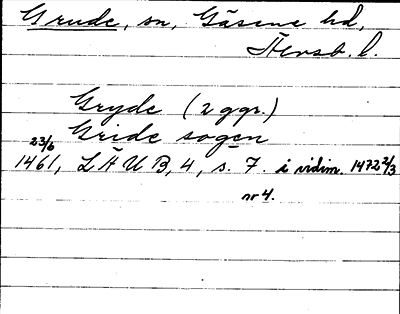 Grude, sn, Gäsene hd,
Älvsb. l.
Gryde (2 ggr.)
Gride sogen
23/6
1461, L Ä U B, 4, s. 7. i vidim. 1472 2/3
nr 4.